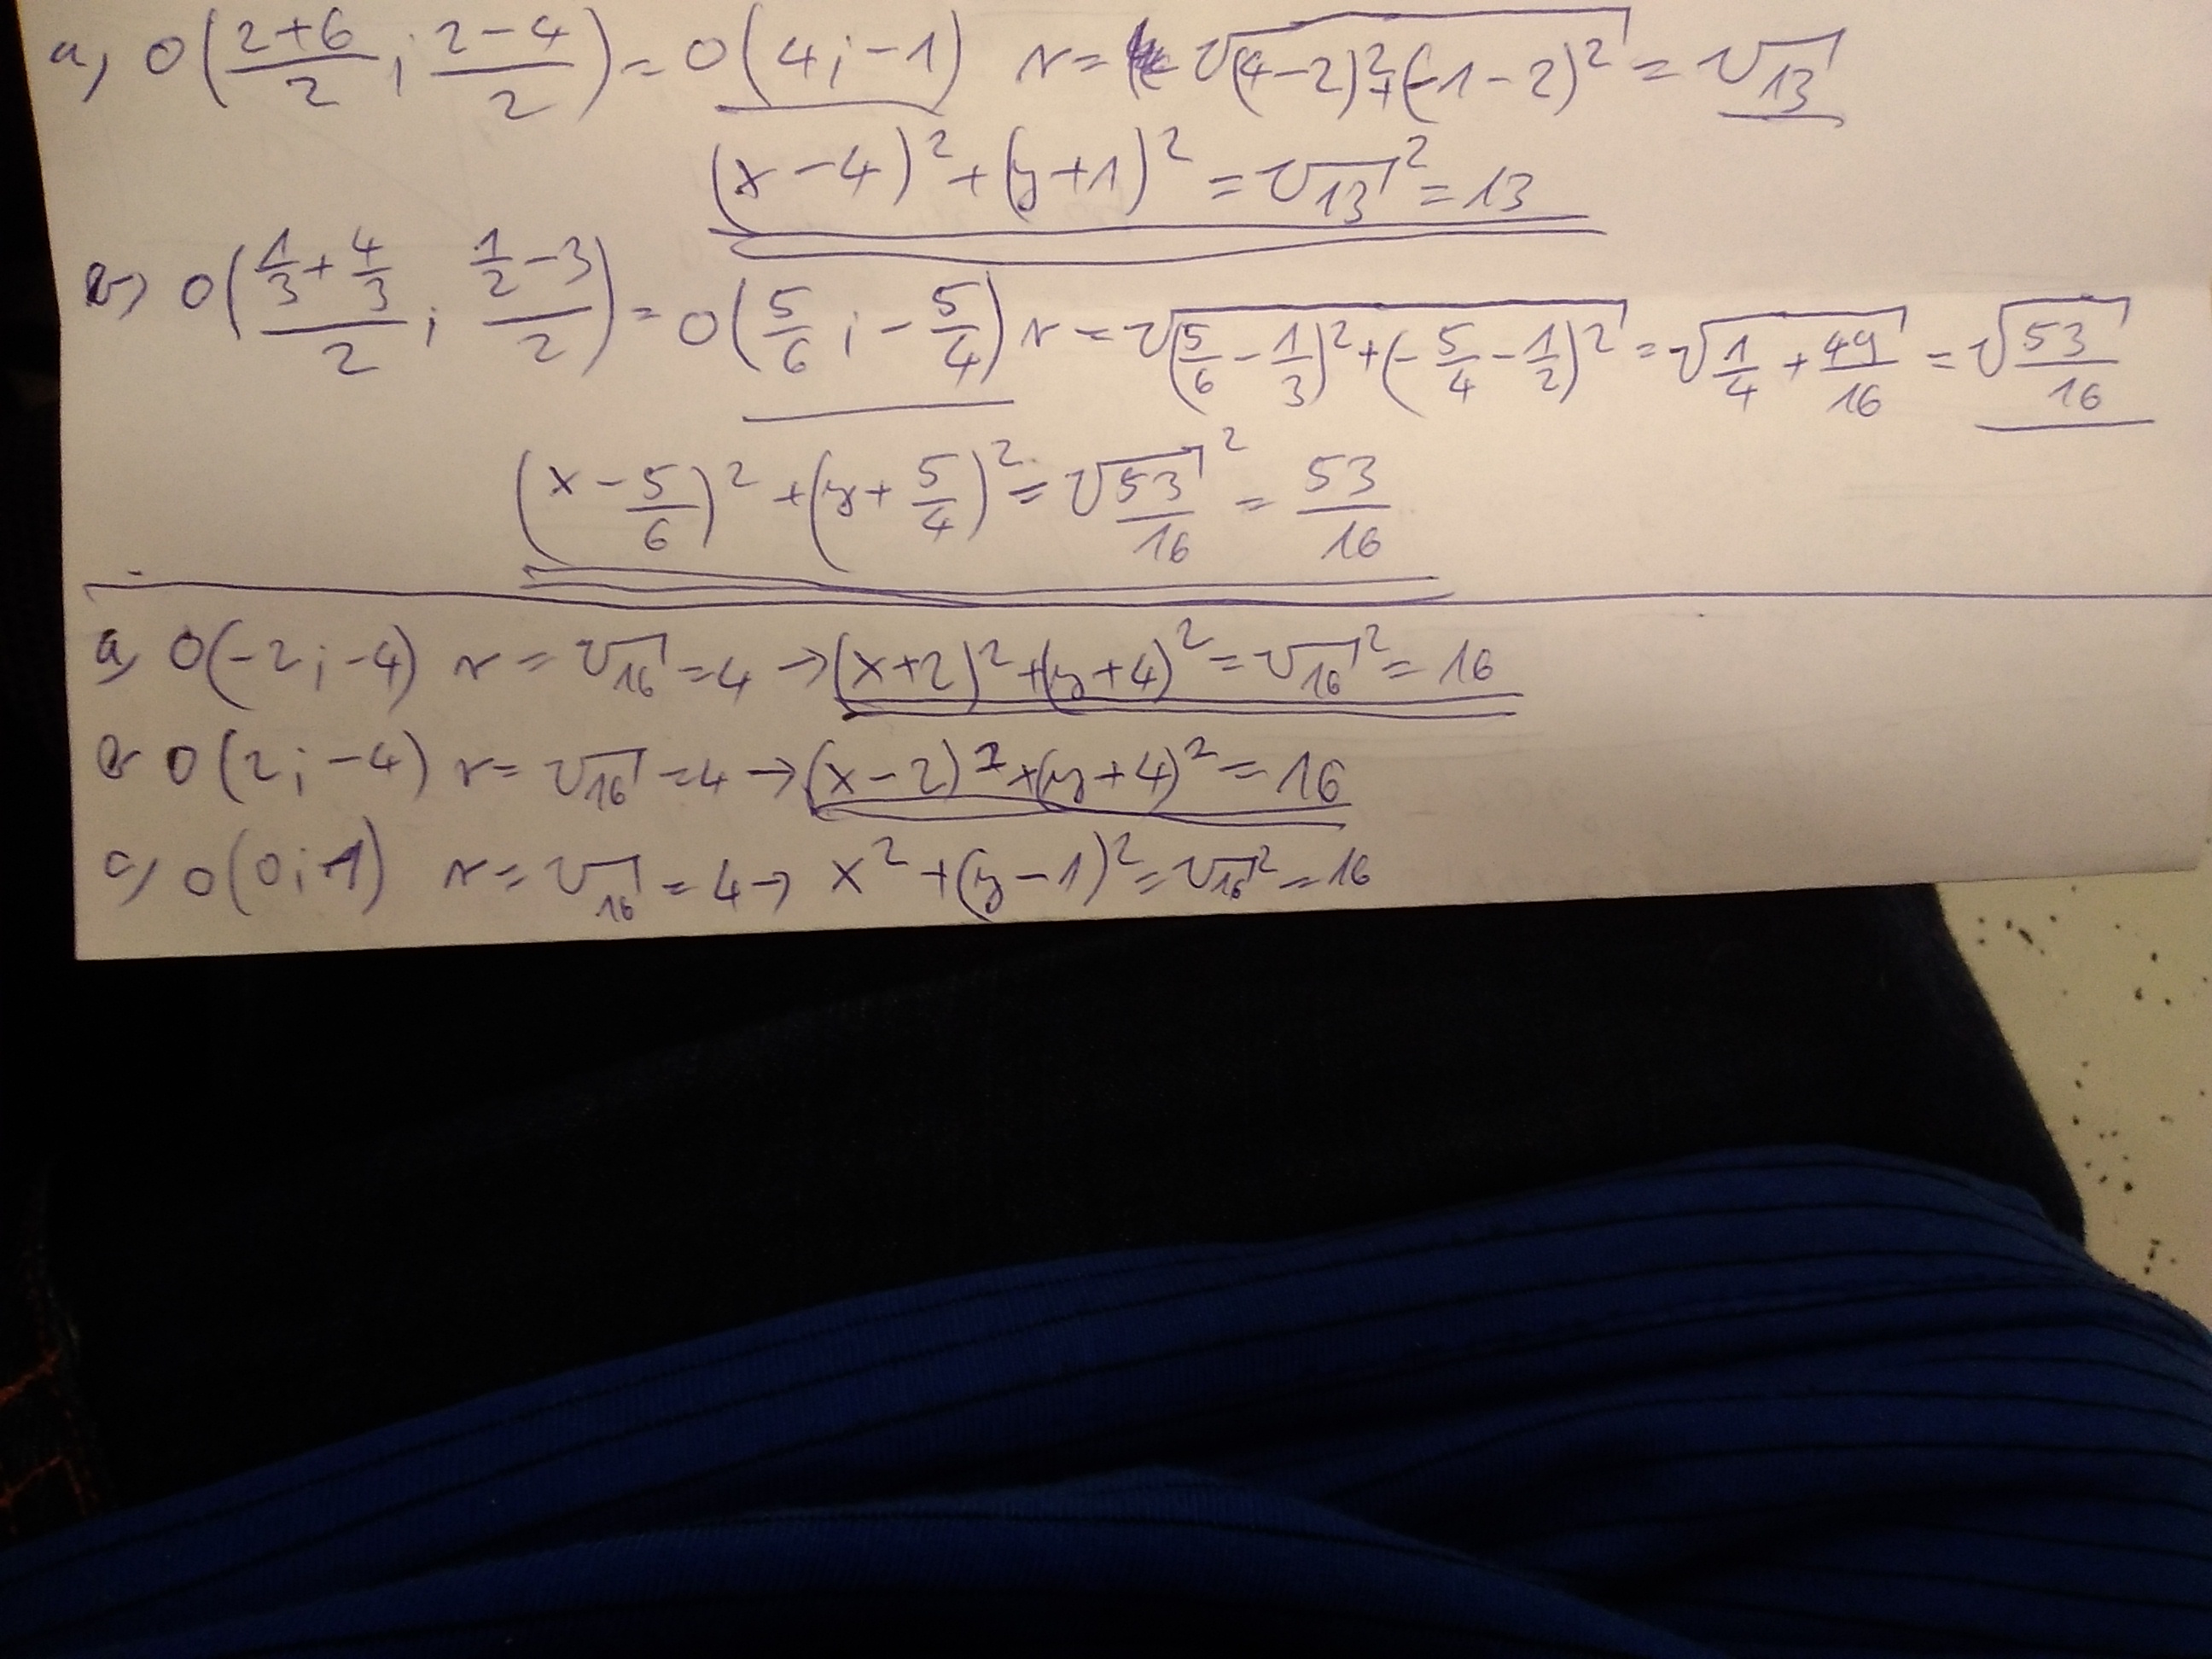 a, O((2+6)/2 ; (2-4)/2) = O(4;-1) r = √((4-2)²+(-1-2)²) = √13
(x-4)²+(y+1)² = √13² = 13
b) O((1/3+4/3)/2 ; (1/2-3)/2) = O(5/6 ; -5/4) r = √((5/6-1/3)²+(-5/4-1/2)²) = √(1/4+49/16) = √(53/16)
(x-5/6)²+(y+5/4)² = √(53/16)² = 53/16
a, O(-2;-4) r = √16 = 4 → (x+2)²+(y+4)² = √16² = 16
b O(2;-4) r = √16 = 4 → (x-2)²+(y+4)² = 16
c, O(0;1) r = √16 = 4 → x²+(y-1)² = √16² = 16